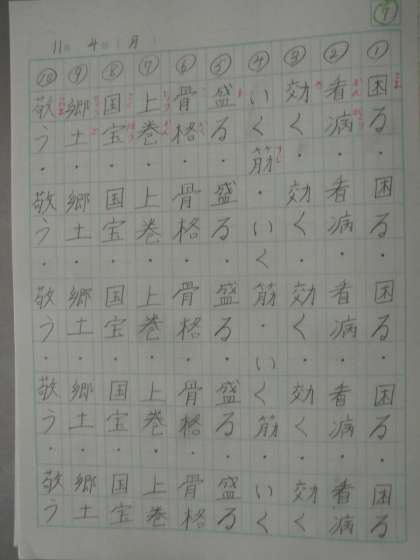 11. 4. (月)
① 困る・困る・困る・困る・困る
② 看病・看病・看病・看病・看病
③ 効く・効く・効く・効く・効く
④ いく筋・いく筋・いく筋・いく
⑤ 盛る・盛る・盛る・盛る・盛る
⑥ 骨格・骨格・骨格・骨格・骨格
⑦ 上巻・上巻・上巻・上巻・上巻
⑧ 国宝・国宝・国宝・国宝・国宝
⑨ 郷土・郷土・郷土・郷土・郷土
⑩ 敬う・敬う・敬う・敬う・敬う